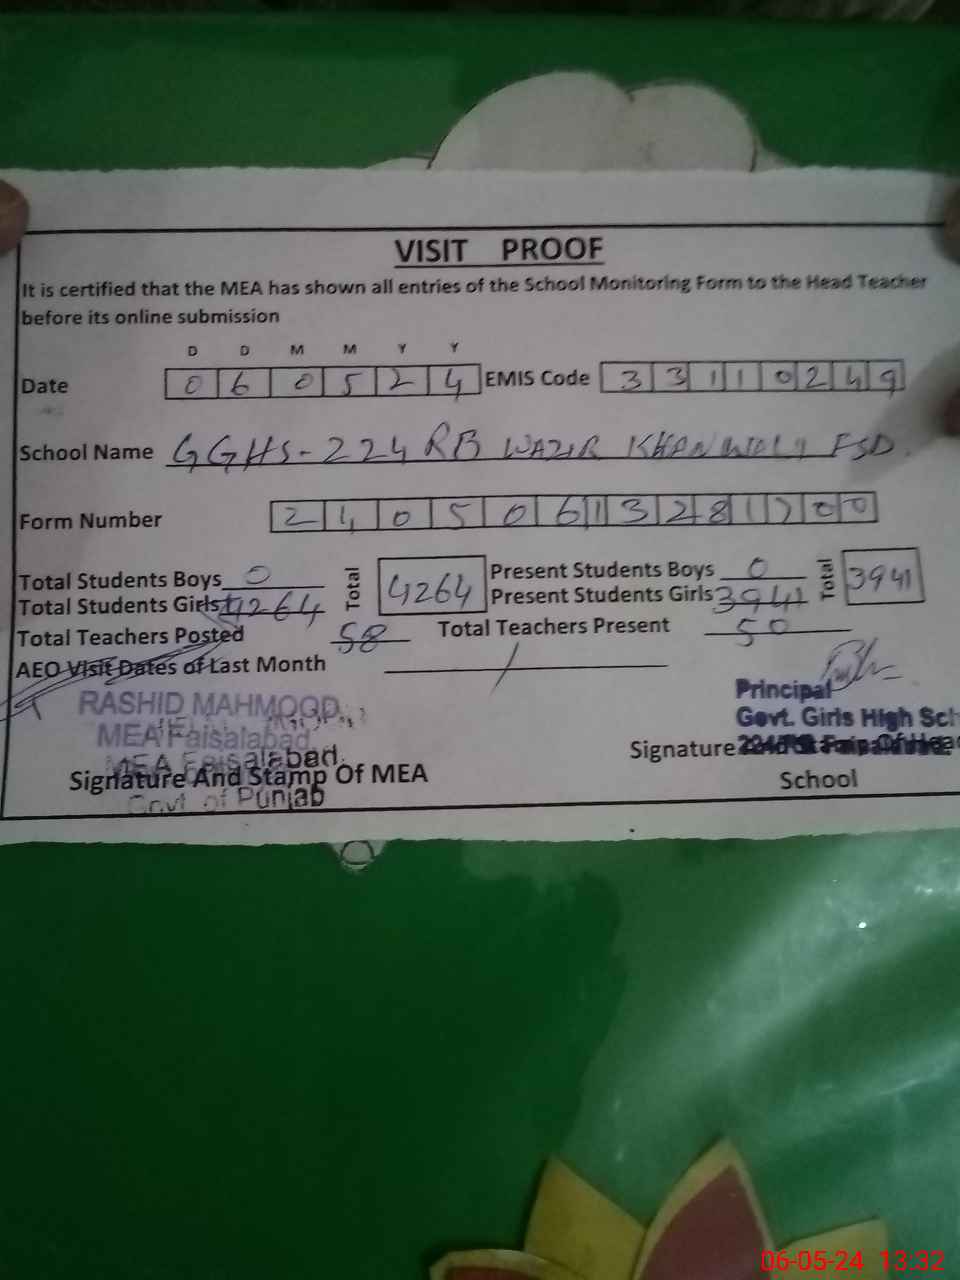 VISIT PROOF
It is certified that the MEA has shown all entries of the School Monitoring Form to the Head Teacher
before its online submission
D D M M Y Y
Date 0 6 0 5 2 4 EMIS Code 3 3 1 1 0 2 4 9
School Name GGHS-224 RB WAZIR KHAN WALI FSD.
Form Number 2 4 0 5 0 6 1 3 2 8 1
Total Students Boys 0 Total 4264 Present Students Boys 0 Total 3941
Total Students Girls 4264 Present Students Girls 3941
Total Teachers Posted 58 Total Teachers Present 50
AEO Visit Dates of Last Month /
RASHID MAHMOOD
MEA Faisalabad
MEA Faisalabad.
Signature And Stamp Of MEA
Govt of Punjab
Principal
Govt. Girls High Sch
Signature
School
06-05-24 13:32